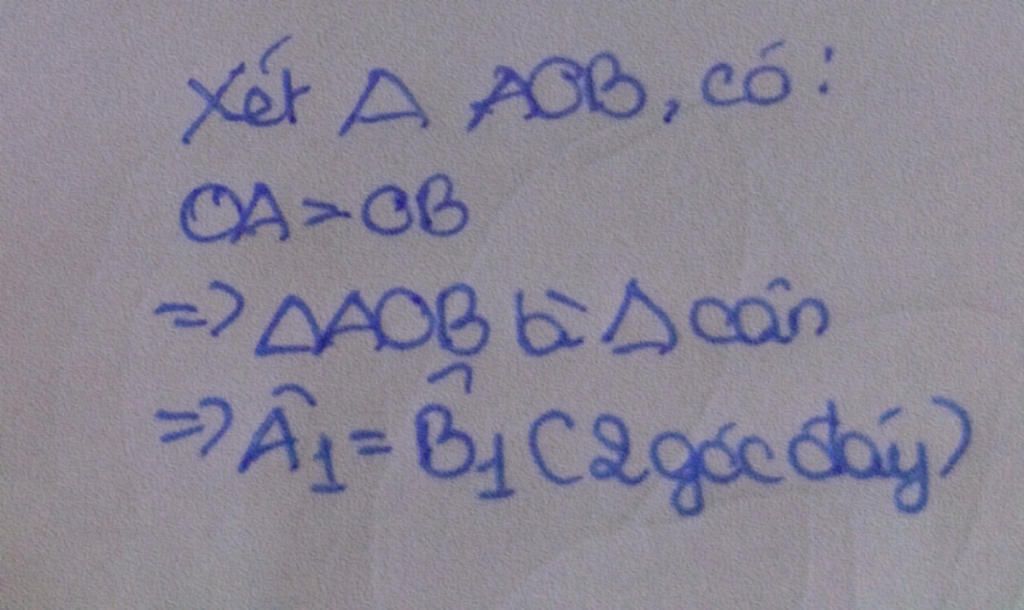 Xét Δ AOB, có:
OA = OB
=> ΔAOB là Δ cân
=> Â₁ = B̂₁ (2 góc đáy)